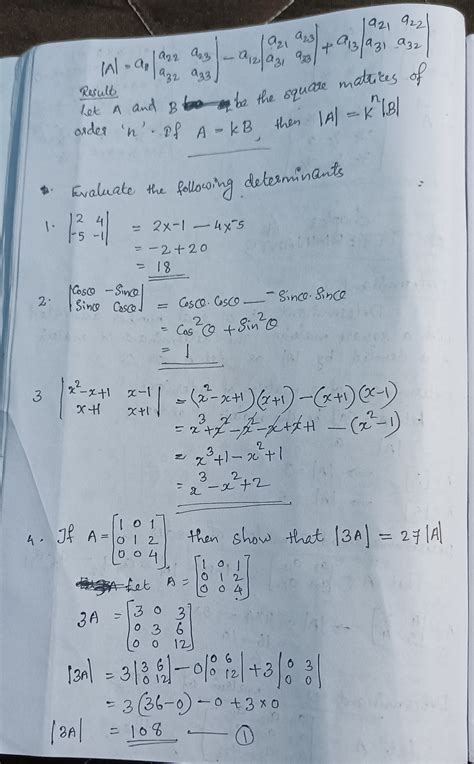 |A| = a₁₁ |a₂₂ a₂₃ a₃₂ a₃₃| - a₁₂ |a₂₁ a₂₃ a₃₁ a₃₃| + a₁₃ |a₂₁ a₂₂ a₃₁ a₃₂|
Result
Let A and B be the square matrices of
order 'n'. If A = kB, then |A| = kⁿ|B|
Evaluate the following determinants :
1. |2 4 -5 -1| = 2x-1 - 4x-5
= -2 + 20
= 18
2. |Cosθ -Sinθ Sinθ Cosθ| = Cosθ.Cosθ - -Sinθ.Sinθ
= Cos²θ + Sin²θ
= 1
3 |x²-x+1 x-1 x+1 x+1| = (x²-x+1)(x+1) - (x+1)(x-1)
= x³+x²-x²-x+x+1 - (x²-1)
= x³+1-x²+1
= x³-x²+2
4. If A = [1 0 1 0 1 2 0 0 4] then show that |3A| = 27|A|
Let A = [1 0 1 0 1 2 0 0 4]
3A = [3 0 3 0 3 6 0 0 12]
|3A| = 3 |3 6 0 12| - 0 |0 6 0 12| + 3 |0 3 0 0|
= 3(36-0) - 0 + 3×0
|3A| = 108 — ①